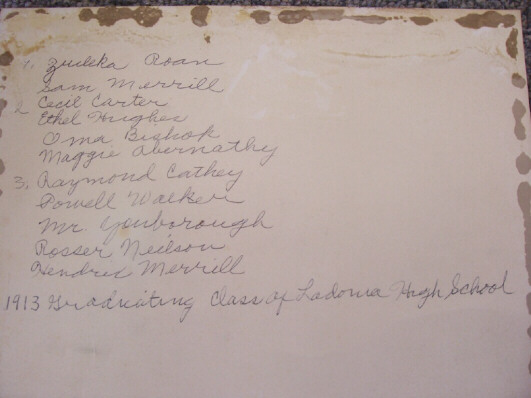 1. Zuleka Roan
Sam Merrill
Cecil Carter
2. Ethel Hughes
Oma Bishop
Maggie Abernathy
3. Raymond Cathey
Powell Walker
Mr. Yonborough
Rosser Neilson
Hendrix Merrill
1913 Graduating Class of Ladonia High School